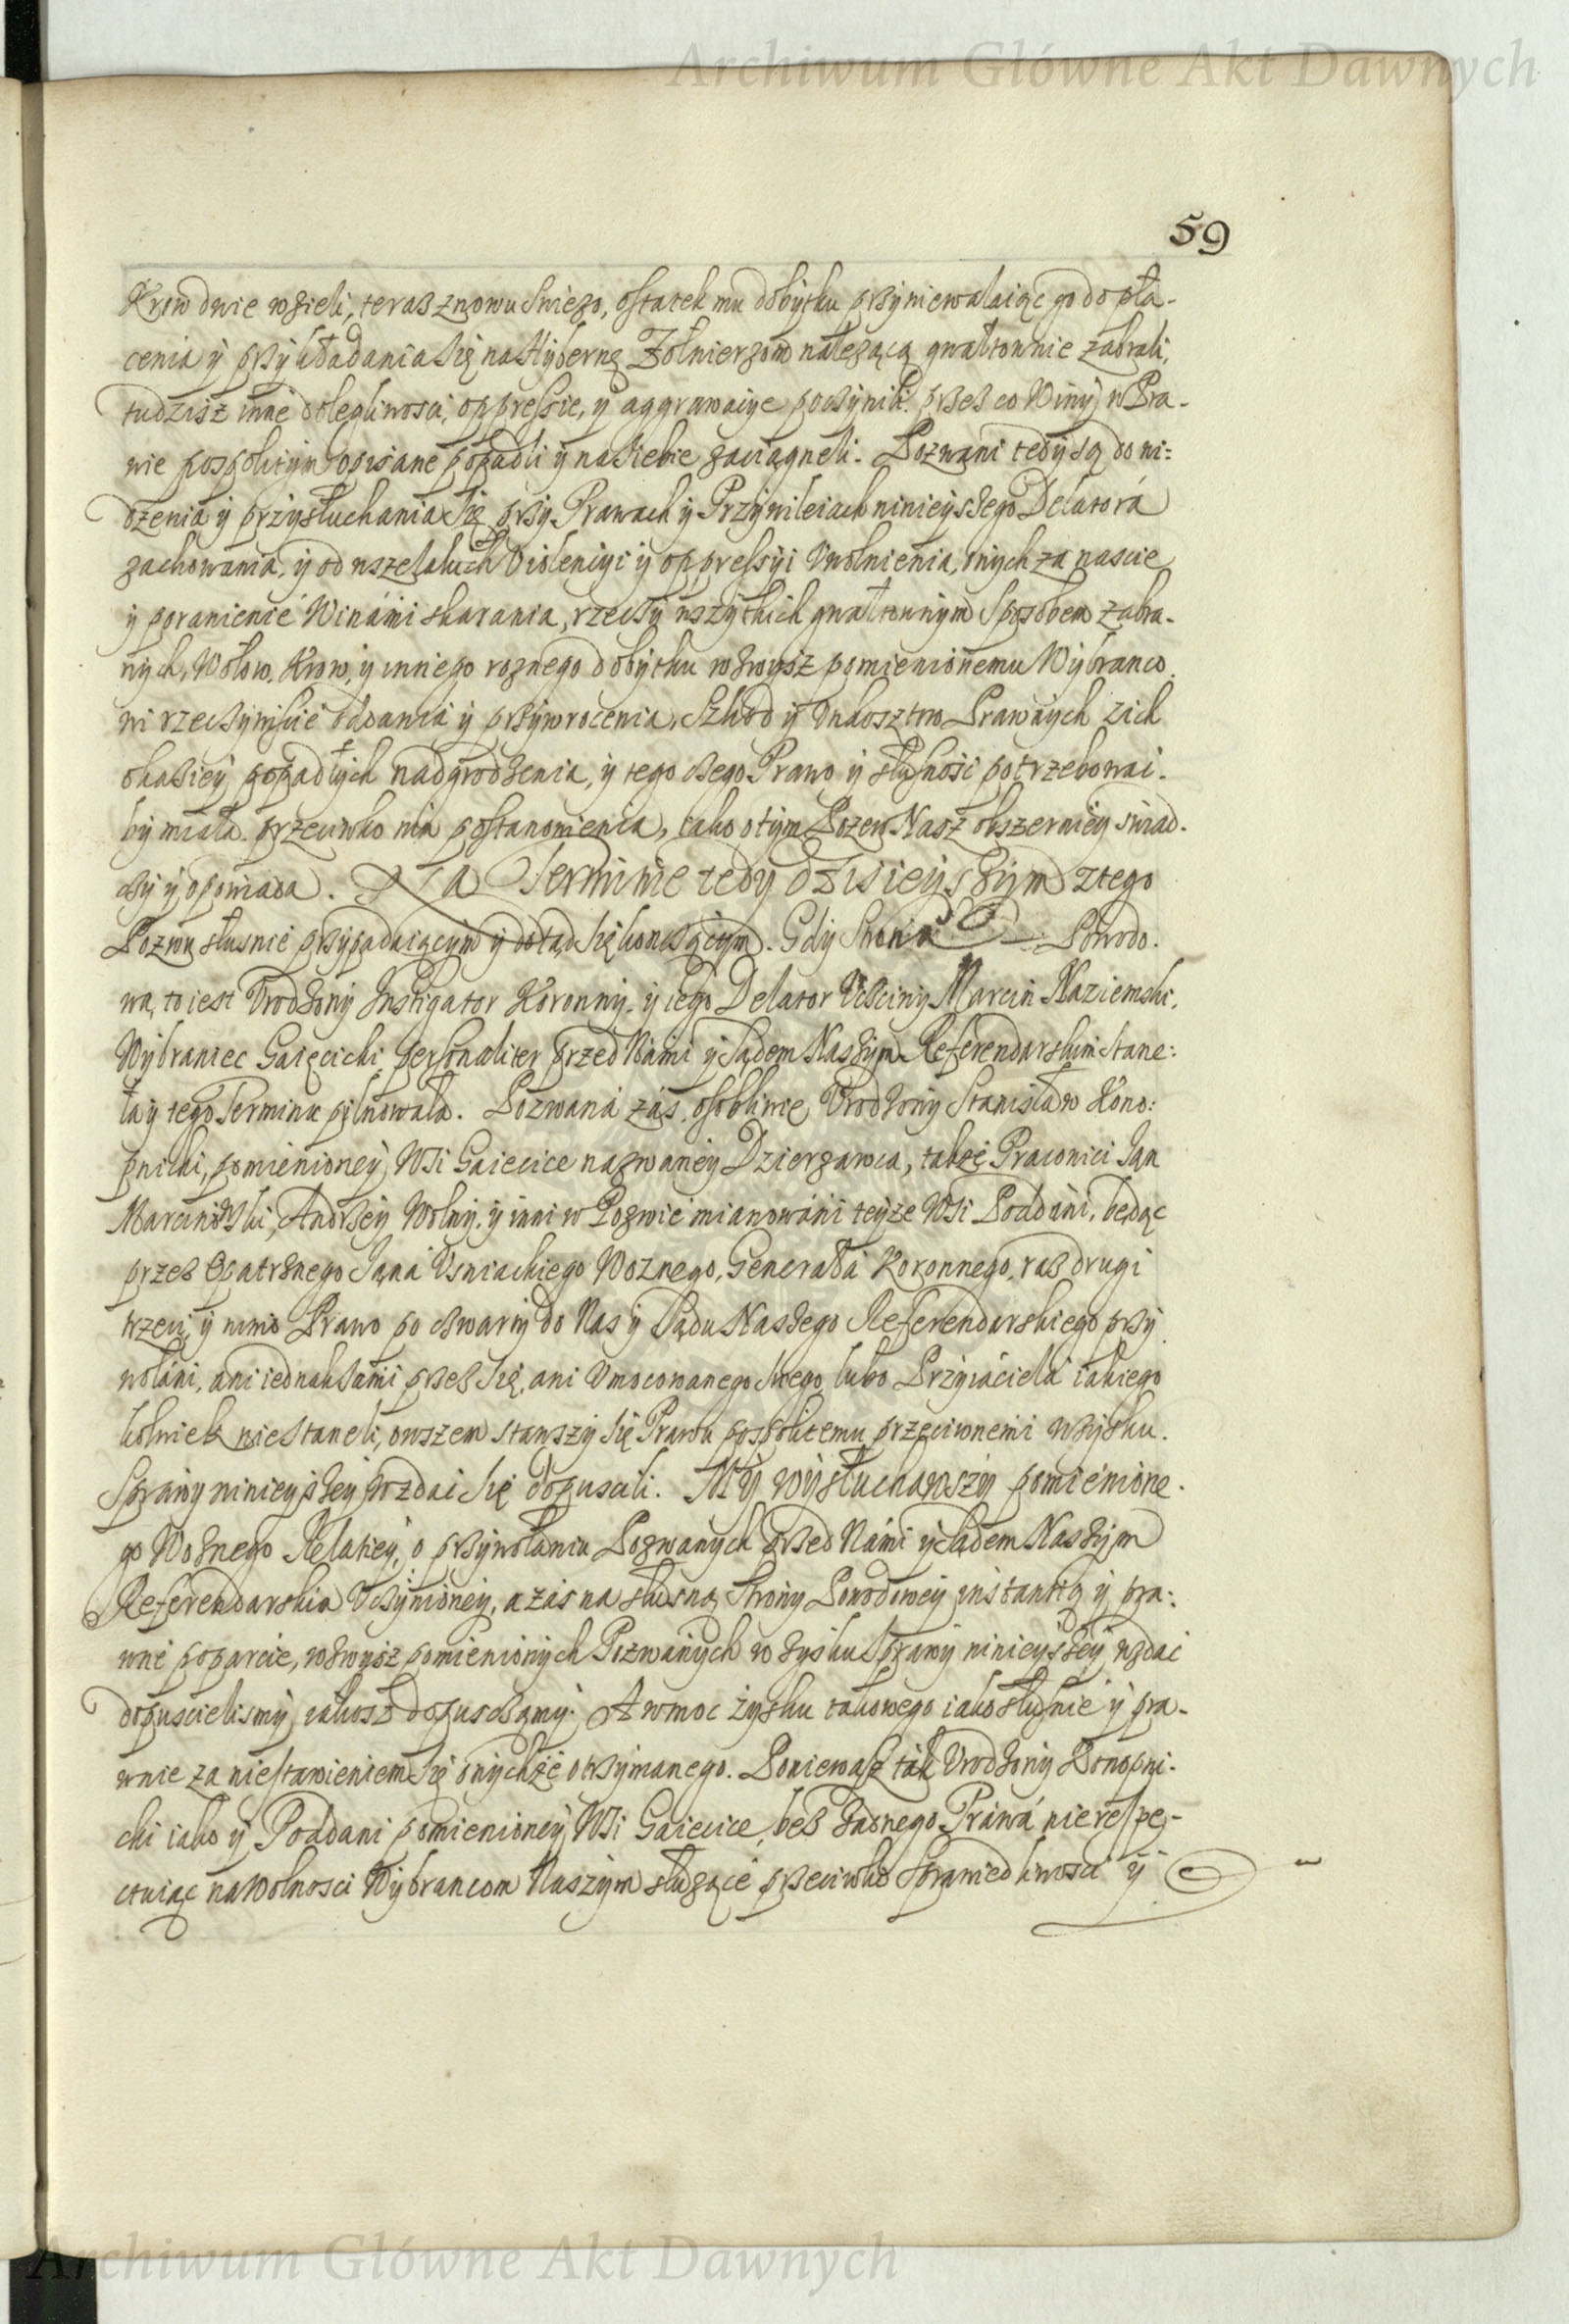 Archiwum Główne Akt Dawnych
59
Krow dwie wzieli, teraz znowu swiezo, ostatek mu dobytku przyniewalaiąc go do pła-
cenia ÿ przykładania się na Hÿbernę Zołnierzom nalezącą gwałtownie zabrali,
tudzisz inne dolegliwosci, oppressie, ÿ aggrawacÿe poczÿnili. przez co Winÿ w Pra-
wie pospolitÿm opisane popadli ÿ na siebie zaciągneli. Pozwani tedÿ są do wi-
dzenia ÿ przysłuchania się przÿ Prawach ÿ Przÿwileiach ninieÿszego Delatora
zachowania, ÿ od wszelakich Violencÿi ÿ oppressÿi Vwolnienia, onych za naście
ÿ poranienie Winámi skarania, rzeczÿ wszÿtkich gwałtownÿm sposobem zabra-
nÿch, Wołow, Krow, ÿ innego roznego dobÿtku wzwÿsz pomienionemu Wÿbrańco
wi rzeczÿwiście oddania ÿ przÿwrocenia, Szkod ÿ Vnkosztow Prawnÿch z ich
okaziey popadłÿch nadgrodzenia, ÿ tego czego Prawo ÿ słusność potrzebować
bÿ miała przeciwko nim postanowienia, iako o tÿm Pozew Nasz obszerniéÿ świad-
czÿ ÿ opowiada. Na Terminie tedy dzisieÿszÿm z tego
Pozwu słusnie przÿpadaiącÿm ÿ dotąd się konczącÿm. Gdÿ Strona Powodo-
wa, to iest Vrodzonÿ Instigator Koronnÿ, ÿ iego Delator Vczciwÿ Marcin Naziemski,
Wÿbraniec Gaięcicki personaliter przed Námi ÿ Sądem Naszÿm Referendarskim stane-
ła ÿ tego Terminu pilnowała. Pozwana zás, osobliwie Vrodzonÿ Stanisław Kono-
pnicki, pomienioneÿ Wsi Gaiecice nazwaneÿ Dzierzawca, także Pracowici Jan
Marcinowski, Andrzeÿ Wolnÿ, ÿ inni w Pozwie mianowani teÿże Wsi Poddani, będąc
przez Opatrznego Jana Vsniackiego Woznego, Generała Koronnego, raz drugi
trzeci, ÿ mimo Prawo po czwartÿ do Nas ÿ Sądu Naszego Referendarskiego przÿ
wołani, ani iednak sami przez się, ani Vmocowanego swego lubo Przÿiáciela iakiego
kolwiek nie staneli, owszem stawszÿ się Prawu pospolitemu przeciwnemi w zÿsku
Sprawÿ ninieÿszeÿ wzdać się dopuscili. Mÿ wÿsłuchawszÿ pomienione-
go Woznego Relatieÿ, o przÿwołaniu Pozwanych przed Námi ÿ Sądem Naszÿm
Referendarskim Vczÿnioneÿ, a zás na słusną Stronÿ Powodoweÿ instantią ÿ pra-
wne poparcie, wzwÿsz pomienionÿch Pozwanÿch w zÿsku Sprawÿ ninieÿszeÿ wzdać
dopuscielismÿ, iakosz dopusczamÿ. A w moc żÿsku takowego iako słusnie ÿ pra-
wnie za niestawieniem się onÿchże otrzÿmanego. Poniewasz tak Vrodzonÿ Konopni-
cki iako ÿ Poddani pomienioneÿ Wsi Gaiecice, bez żadnego Práwa nie respe-
ctuiąc na Wolnosci Wÿbrancom Naszÿm słuzące przeciwko Sprawiedliwosci ÿ
Archiwum Główne Akt Dawnych